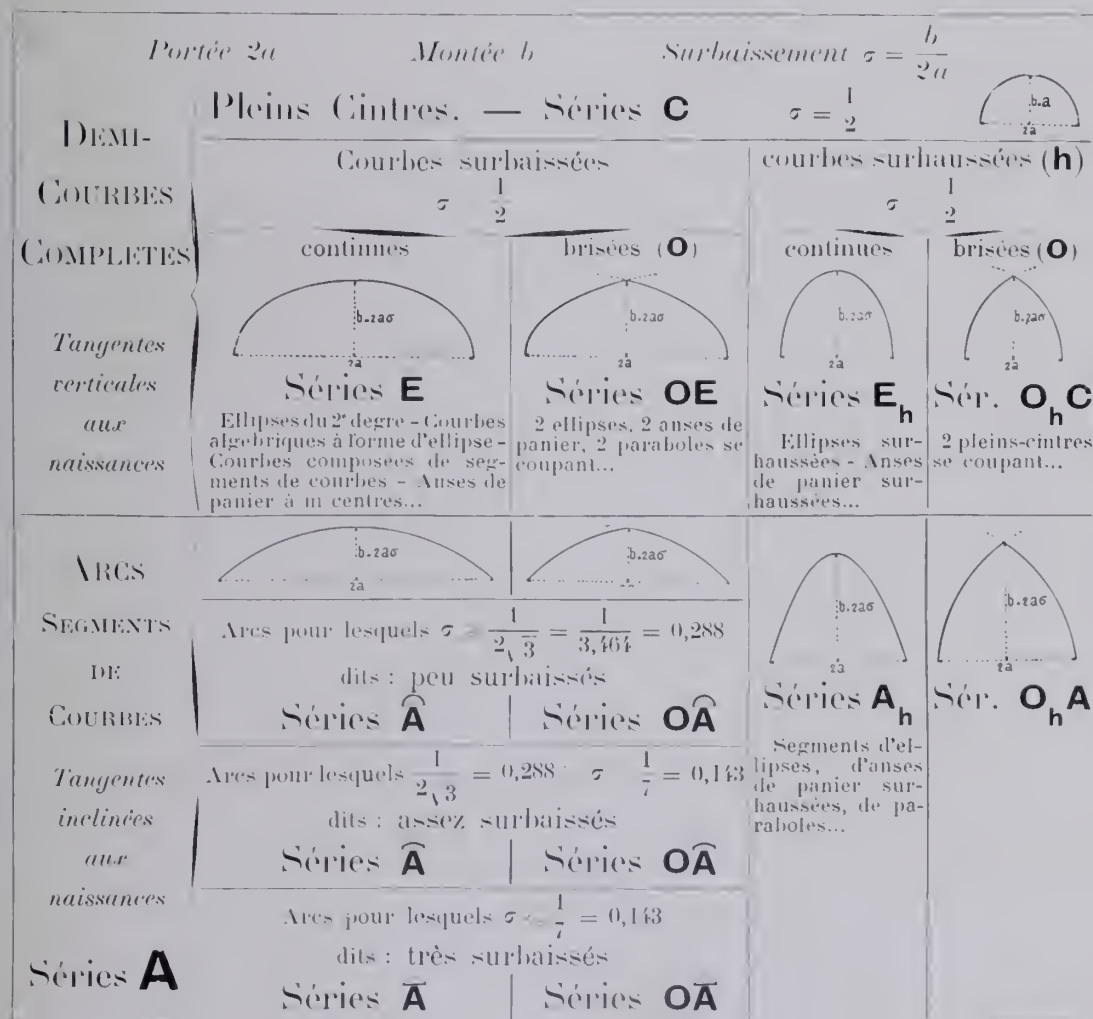 Portée 2a Montée b Surbaissement σ = b/2a
Pleins Cintres. — Séries C σ = 1/2
b.a
2a
DEMI-
COURBES
COMPLETES
Tangentes
verticales
aux
naissances
Courbes surbaissées
σ 1/2
courbes surhaussées (h)
σ 1/2
continues
b.2aσ
2a
Séries E
Ellipses du 2e degre - Courbes
algebriques à forme d'ellipse -
Courbes composées de seg-
ments de courbes - Anses de
panier à m centres...
brisées (O)
b.2aσ
2a
Séries OE
2 ellipses, 2 anses de
panier, 2 paraboles se
coupant...
continues
b.2aσ
2a
Séries Eh
Ellipses sur-
haussées - Anses
de panier sur-
haussées...
brisées (O)
b.2aσ
2a
Sér. OhC
2 pleins-cintres
se coupant...
ARCS
SEGMENTS
DE
COURBES
Tangentes
inclinées
aux
naissances
Séries A
b.2aσ
2a
b.2aσ
Arcs pour lesquels σ 1/2√3 = 1/3,464 = 0,288
dits : peu surbaissés
Séries Ȃ Séries OȂ
Arcs pour lesquels 1/2√3 = 0,288 σ 1/7 = 0,143
dits : assez surbaissés
Séries Ȃ Séries OȂ
Arcs pour lesquels σ 1/7 = 0,143
dits : très surbaissés
Séries A̅ Séries OA̅
b.2aσ
2a
Séries Ah
Segments d'el-
lipses, d'anses
de panier sur-
haussées, de pa-
raboles...
b.2aσ
2a
Sér. OhA